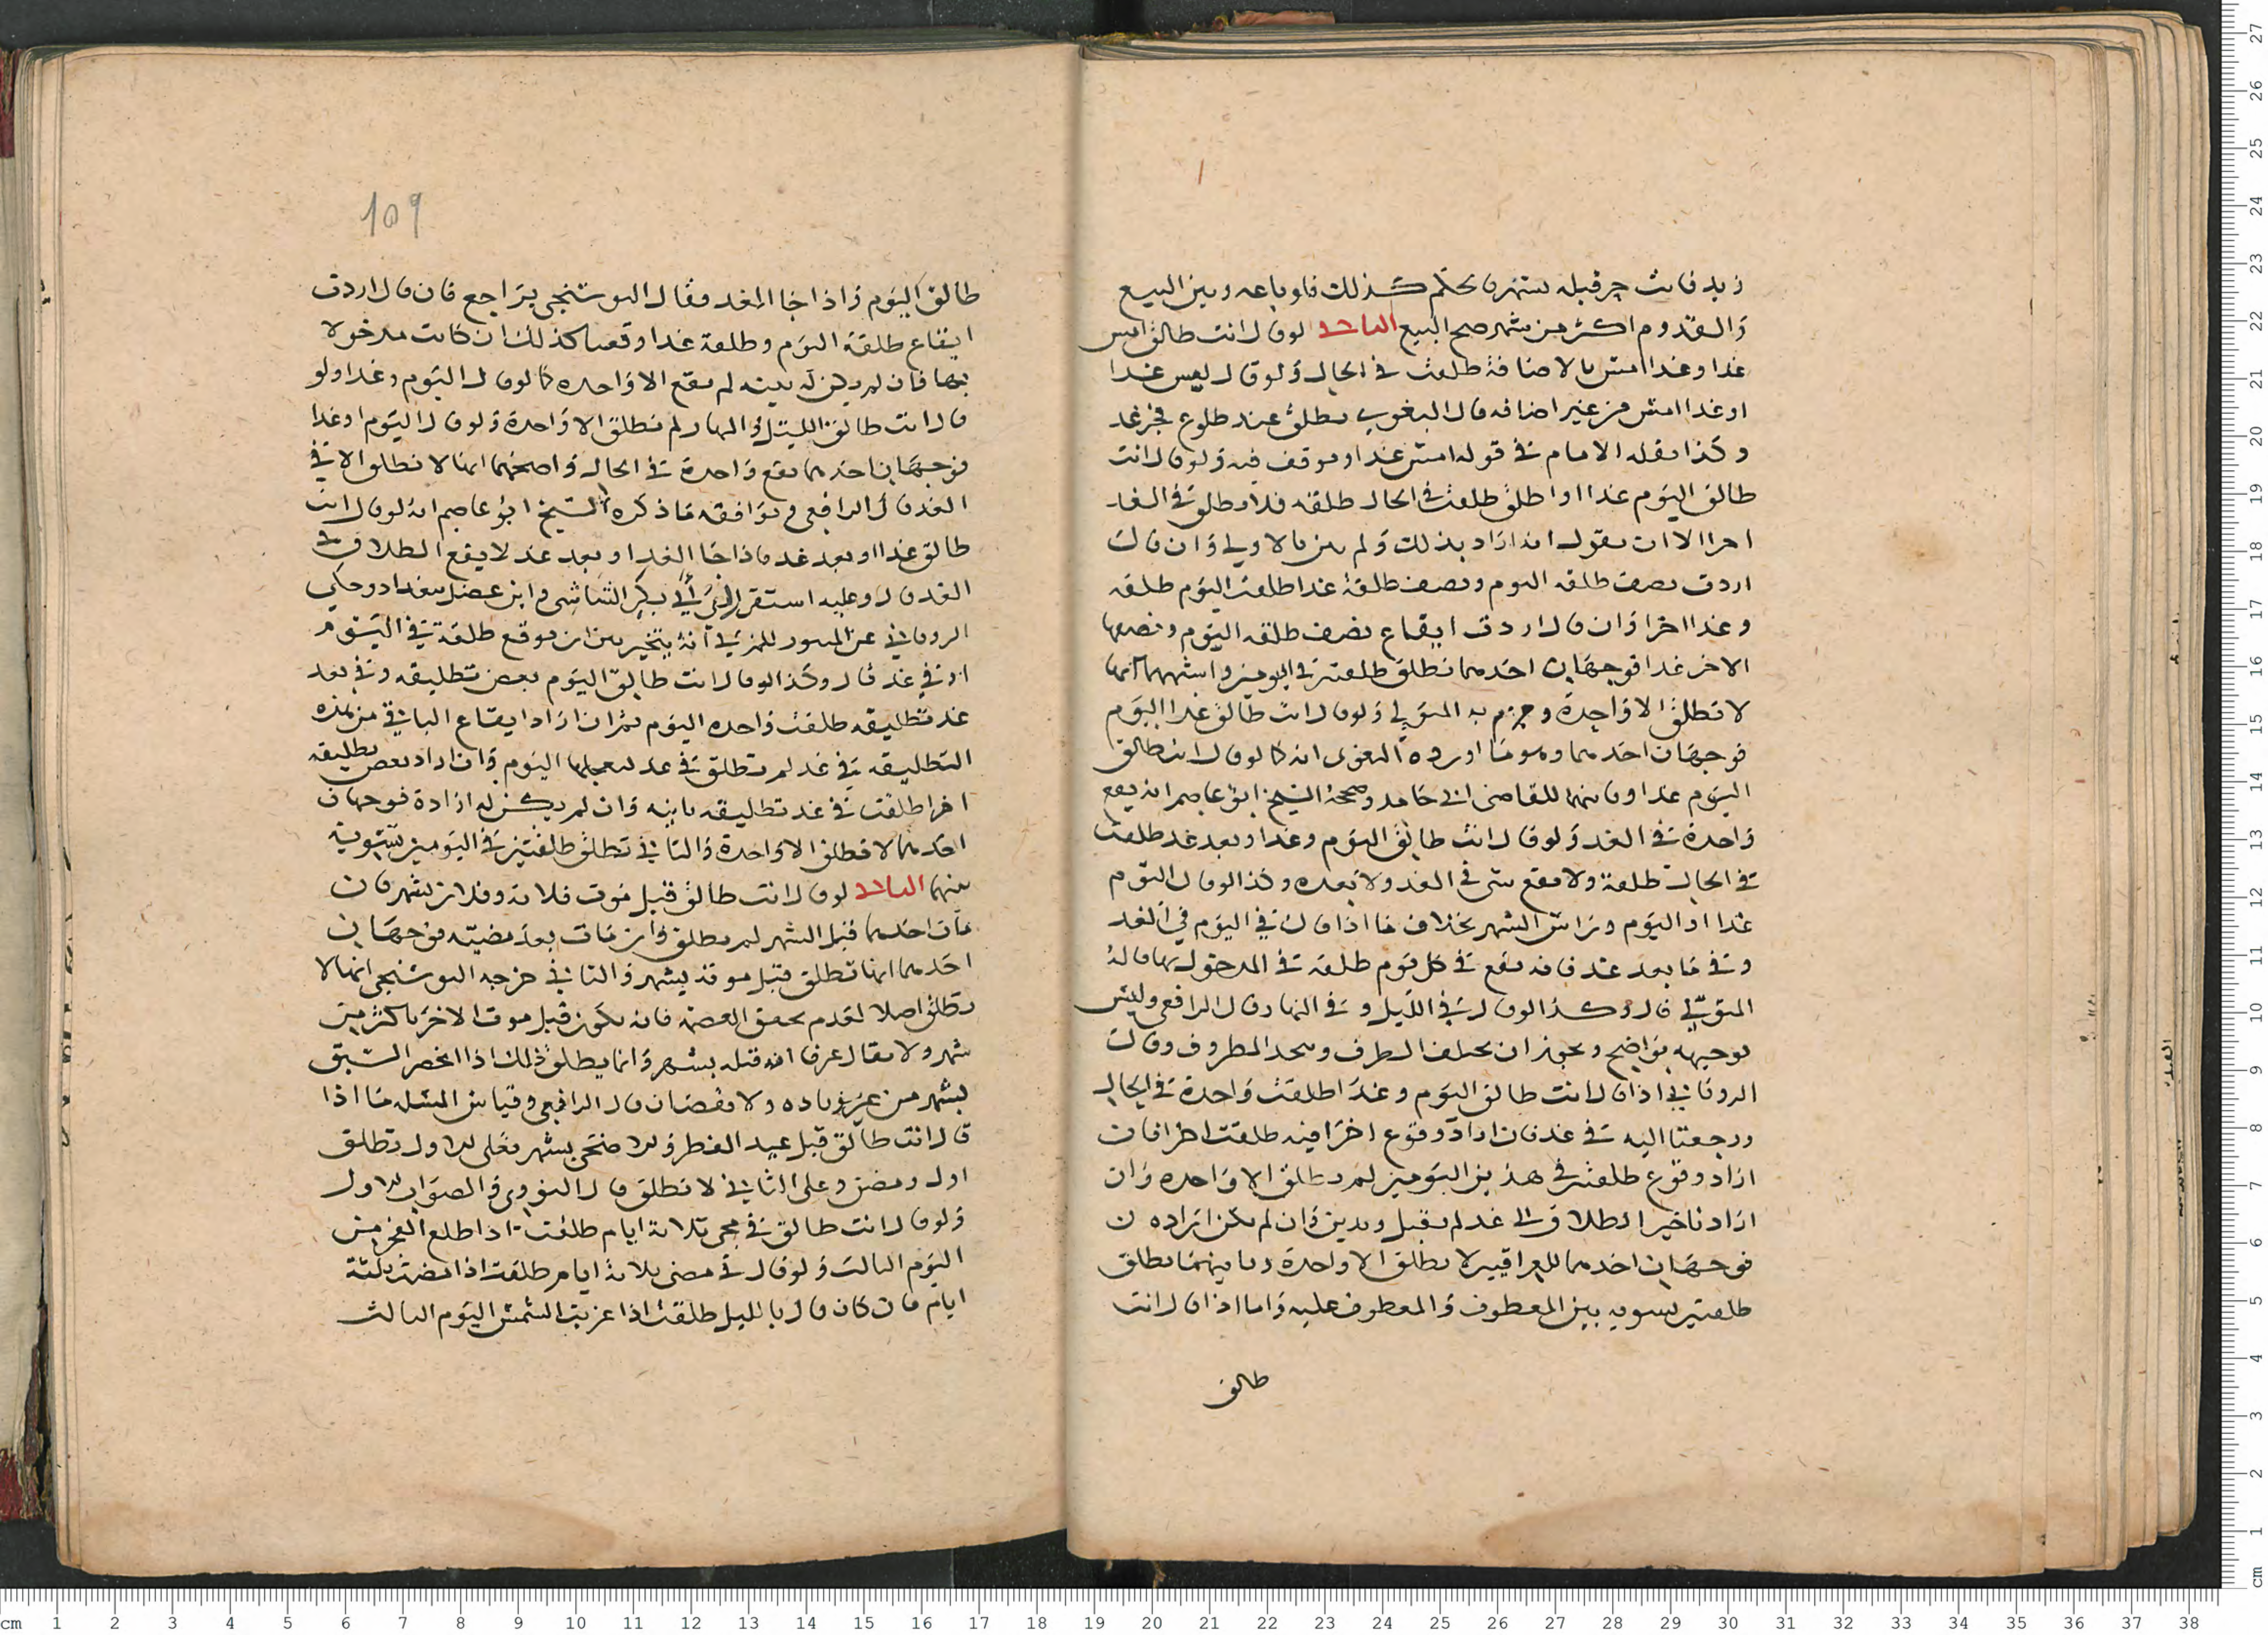 زيد فانت حر قبله بشهر تحكم كذلك فلو باعه وبين البيع
والقدوم اكثر من شهر صح البيع الثالث لو قال انت طالق امس
غدا او غدا امس بالاضافة طلقت في الحال ولو قال امس غدا
او غدا امس من غير اضافه قال البغوي تطلق عند طلوع فجر غد
وكذا نقله الامام في قوله امس غدا وتوقف فيه ولو قال انت
طالق اليوم غدا او اطلق طلقت في الحال طلقه فلا تطلق في الغد
اخرا الا ان يقول انه اراد بذلك ولم تبن بالاولي وان قال
اردت نصف طلقه اليوم ونصف طلقة غدا طلقت اليوم طلقه
وغدا اخرا وان قال اردت ايقاع نصف طلقه اليوم ونصفها
الاخر غدا فوجهان احدهما تطلق طلقتين في اليومين واشبههما انها
لا تطلق الا واحدة وجزم به المتولي ولو قال انت طالق غدا اليوم
فوجهان احدهما وهو ما اورده البغوي انه كما لو قال انت طالق
اليوم غدا وثانيهما للقاضي ابي حامد وصححه الشيخ ابو عاصم انه يقع
واحدة في الغد ولو قال انت طالق اليوم وغدا وبعد غد طلقت
في الحال طلقة ولا يقع شى في الغد ولا بعده وكذا لو قال اليوم
غدا او اليوم وراس الشهر بخلاف ما اذا قال في اليوم في الغد
وفي ما بعد غد فانه يقع في كل يوم طلقه في المدخول بها قاله
المتولي قال وكذا لو قال في الليل وفي النهار قال الرافعي وليس
توجيهه بواضح ويجوز ان يختلف الطرف ويتحد المظروف وقال
الروياني اذا قال انت طالق اليوم وغدا طلقت واحدة في الحال
ورجعنا اليه في غد فان اراد وقوع اخرا فيه طلقت اخرا فان
اراد وقوع طلقة في هذين اليومين لم تطلق الا واحده وان
اراد تاخير الطلاق الى غد لم يقبل ويدين وان لم تكن اراده ن
فوجهان احدهما للعراقيين لا تطلق الا واحدة وثانيهما تطلق
طلقتين تسويه بين المعطوف والمعطوف عليه واما اذا قال انت
طالق
109
طالق اليوم واذا جا الغد فقال البوشنجي يراجع فان قال اردت
ايقاع طلقة اليوم وطلقة غدا وقعتا كذلك ان كانت مدخولا
بها فان لم يكن له نيته لم يقع الا واحده كما لو قال اليوم وغدا ولو
قال انت طالق الليل والنهار لم تطلق الا واحدة ولو قال اليوم او غدا
فوجهان احدهما يقع واحدة في الحال واصحهما انها لا تطلق الا في
الغد قال الرافعي ويوافقه ما ذكره الشيخ ابو عاصم انه لو قال انت
طالق غدا او بعد غد فاذا جا الغد او بعد غد لا يقع الطلاق في
الغد قال وعليه استقر راي ابي بكر الشاشي وابن عقيل ببغداد وحكي
الروياني عن المنثور للمزني انه يتخير بين ان يوقع طلقة في اليوم
او في غد قال وكذا لو قال انت طالق اليوم بعض تطليقه وفي بعد
غد تطليقه طلقت واحده اليوم ثم ان اراد ايقاع الباقي من هذه
التطليقه في غد لم تطلق في غد لتعجلها اليوم وان اراد بعض تطليقه
اخرا طلقت في غد تطليقه ثانيه وان لم يكن له ارادة فوجهان
احدهما لا تطلق الا واحدة والثاني تطلق طلقتين في اليومين تسويه
بينهما الثالث لو قال انت طالق قبل موت فلان وفلان بشهر فان
مات احدهما قبل الشهر لم تطلق وان مات بعد مضيه فوجهان
احدهما انها تطلق قبل موته بشهر والثاني خرجه البوشنجي انها لا
تطلق اصلا لعدم تحقق الصفه فانه يكون قبل موت الاخر باكثر من
شهر ولا يقال عرفا انه قبله بشهر وانما يطلق ذلك اذا انحصر السبق
بشهر من غير زياده ولا نقصان قال الرافعي وقياس المسله ما اذا
قال انت طالق قبل عيد الفطر والاضحى بشهر فعلى الاول تطلق
اول رمضن وعلى الثاني لا تطلق قال النووي والصواب الاول
ولو قال انت طالق في مجى ثلاثة ايام طلقت اذا طلع الفجر من
اليوم الثالث ولو قال في مضي ثلاثة ايام طلقت اذا مضت ثلثة
ايام فان كان قال بالليل طلقت اذا غربت الشمس اليوم الثالث